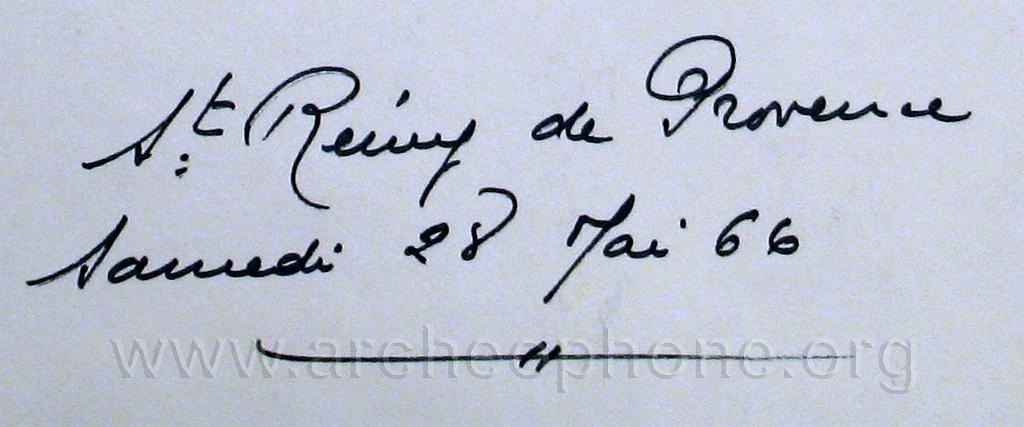 St Remy de Provence
Samedi 28 Mai 66
www.archeophone.org